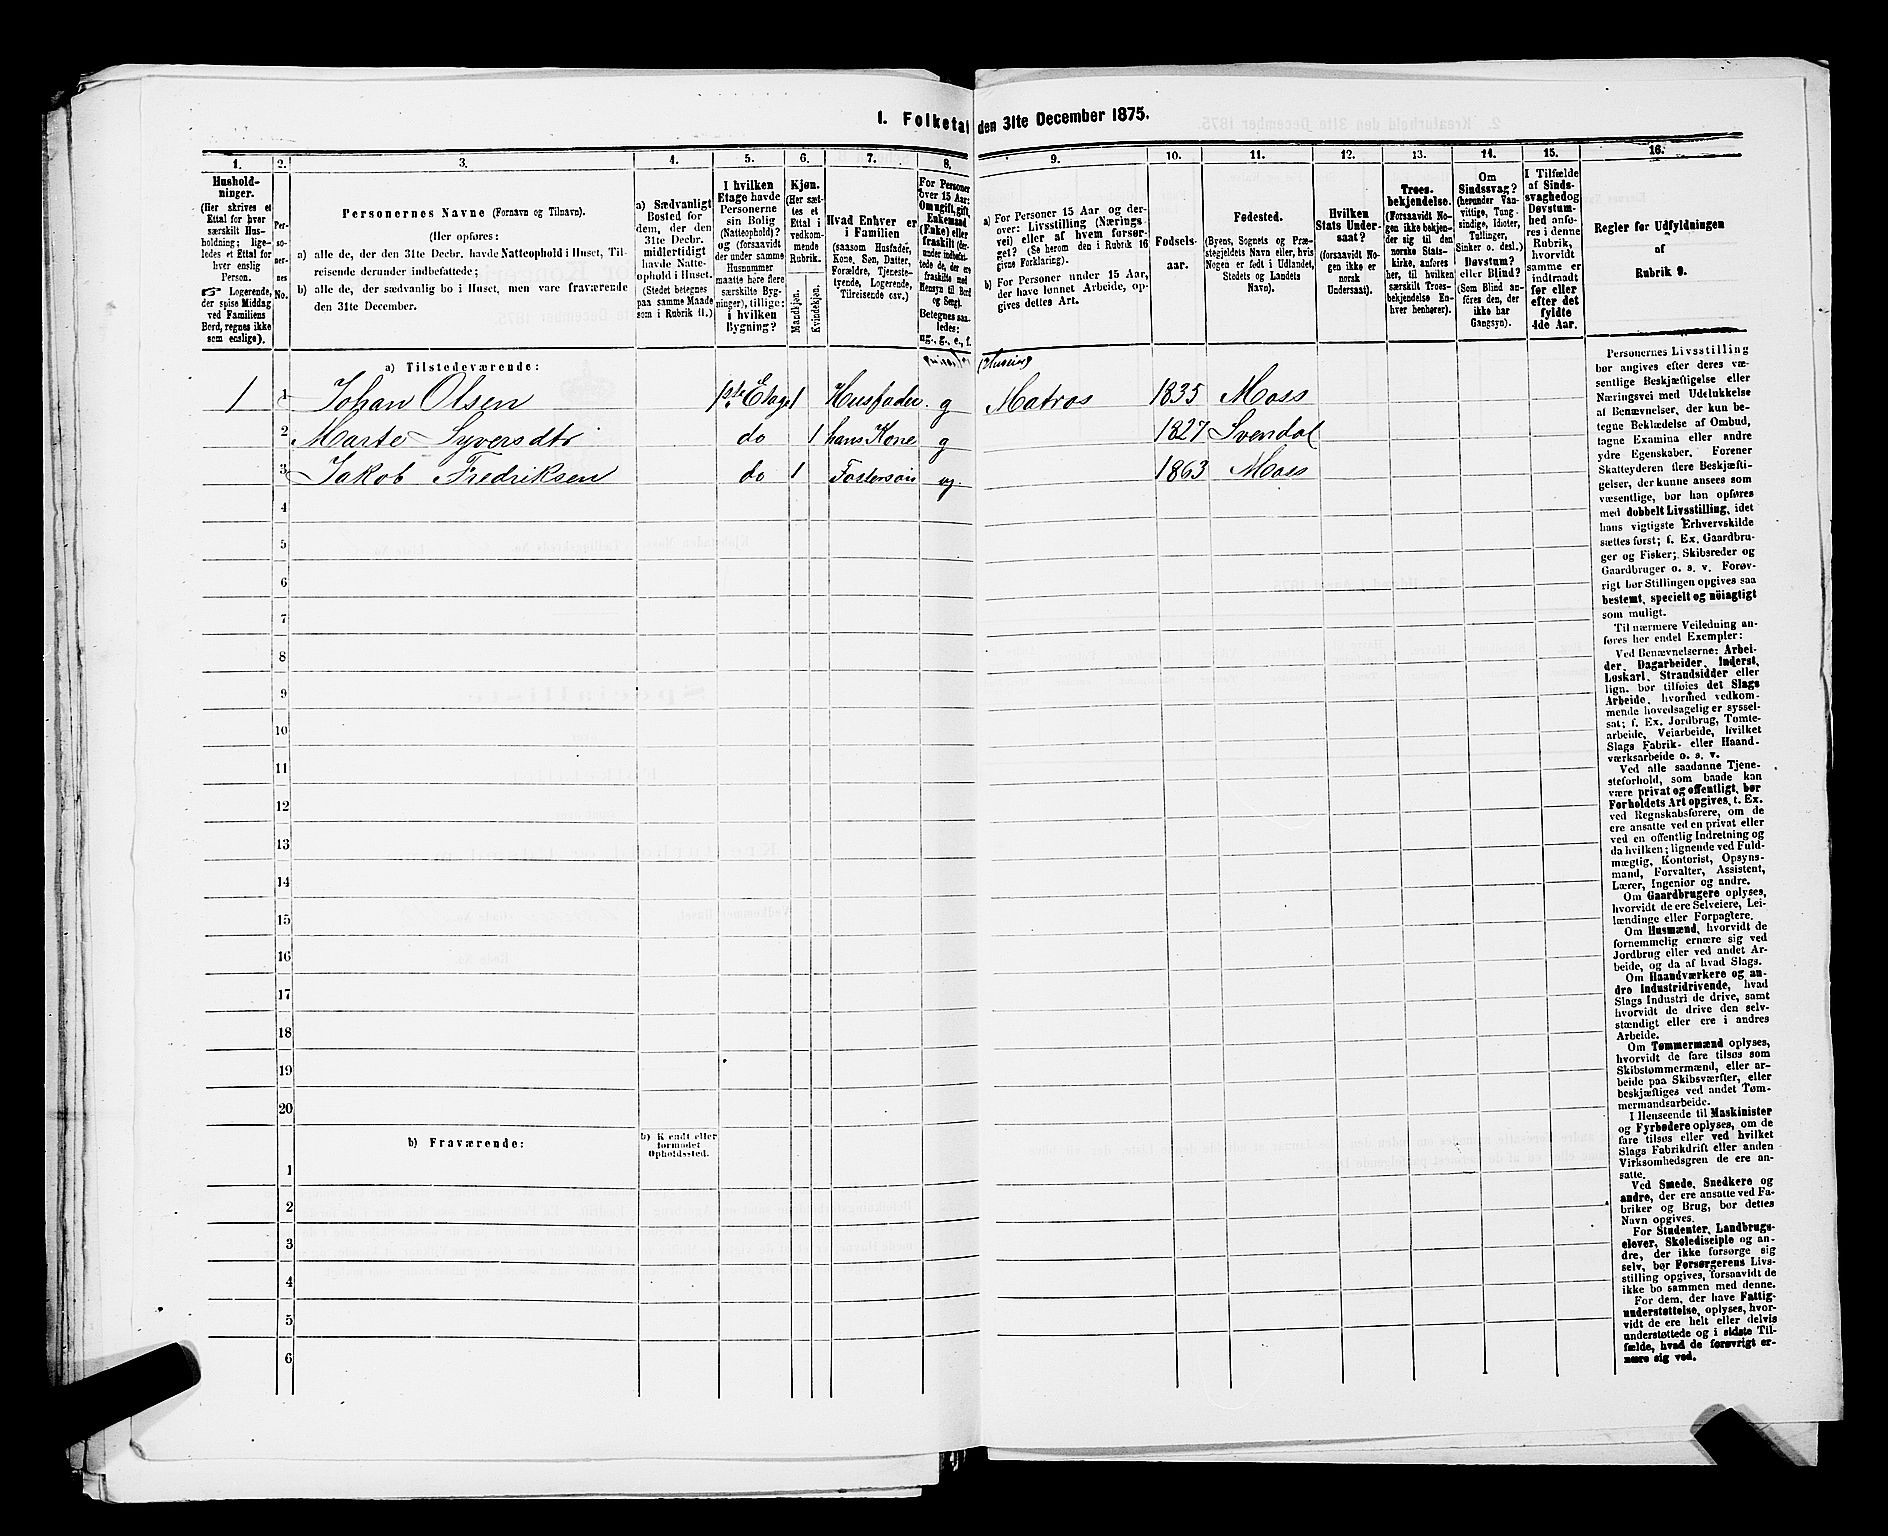 1. Folketal den 31te December 1875.
1. 2. 3. 4. 5. 6. 7. 8. 9. 10. 11. 12. 13. 14. 15. 16.
Hushold-
ninger.
(Her skrives et
Ettal for hver
særskilt Hus-
holdning; lige-
ledes et Ettal for
hver enslig
Person.
☞ Logerende,
der spise Middag
ved Familiens
Bord, regnes ikke
som enslige).
Per-
so-
ner-
nes
No.
Personernes Navne (Fornavn og Tilnavn).
(Her opføres:
a) alle de, der den 31te Decbr. havde Natteophold i Huset, Til-
reisende derunder indbefattede;
b) alle de, der sædvanlig bo i Huset, men vare fraværende
den 31te December.
a) Sædvanligt
Bosted for
dem, der den
31te Decbr.
midlertidigt
havde Natte-
ophold i Huset.
(Stedet betegnes
paa samme Maade
som i Rubrik 11.)
I hvilken
Etage havde
Personerne
sin Bolig
(Natteophold)?
og (forsaavidt
der under samme
Husnummer
maatte høre flere
særskilte Byg-
ninger), tillige:
i hvilken
Bygning?
Kjøn.
(Her sæt-
tes et
Ettal i
vedkom-
mende
Rubrik.
Mandkjøn.
Kvindekjøn.
Hvad Enhver er
i Familien
(saasom Husfader,
Kone, Søn, Datter,
Forældre, Tjeneste-
tyende, Logerende,
Tilreisende osv.)
For Personer
over 15 Aar:
Om ugift, gift,
Enkemand
(Enke) eller
fraskilt (der-
under indbefat-
tede de, der ere
fraskilte med
Hensyn til Bord
og Seng).
Betegnes saa-
ledes:
ug., g., e., f.
a) For Personer 15 Aar og der-
over: Livsstilling (Nærings-
vei) eller af hvem forsør-
get? (Se herom den i Rubrik 16
givne Forklaring).
b) For Personer under 15 Aar,
der have lønnet Arbeide, op-
gives dettes Art.
Fødsels-
aar.
Fødested.
(Byens, Sognets og Præ-
stegjeldets Navn eller, hvis
Nogen er født i Udlandet,
Stedets og Landets
Navn).
Hvilken
Stats Under-
saat?
(forsaavidt No-
gen ikke er
norsk
Undersaat).
Troes-
bekjendelse.
(Forsaavidt No-
gen ikke bekjen-
der sig til den
norske Stats-
kirke, anføres
her, til hvilken
særskilt Troes-
bekjendelse En-
hver henhører).
Om
Sindssvag?
(herunder Van-
vittige, Tung-
sindige, Idioter,
Tullinger,
Sinker o. desl.)
Døvstum?
eller Blind?
(Som Blind an-
føres den, der
ikke har
Gangsyn).
I Tilfælde
af Sinds-
svaghed og
Døvstum-
hed anfø-
res i denne
Rubrik,
hvorvidt
samme er
indtraadt
før eller
efter det
fyldte
4de Aar.
Regler for Udfyldningen
af
Rubrik 9.
a) Tilstedeværende:
1 1 Johan Olsen 1ste Etage 1 Husfader g Matros 1835 Moss
2 Marte Syversdtr do 1 hans Kone g 1827 Svendal
3 Jakob Fredriksen do 1 Fostersøn ug 1863 Moss
4
5
6
7
8
9
10
11
12
13
14
15
16
17
18
19
20
b) Fraværende:
b) Kjendt eller
formodet
Opholdssted.
1
2
3
4
5
6
Personernes Livsstilling
bør angives efter deres væ-
sentlige Beskjæftigelse eller
Næringsvei med Udelukkelse
af Benævnelser, der kun be-
tegne Beklædelse af Ombud,
tagne Examina eller andre
ydre Egenskaber. Forener
Skatteyderen flere Beskjæfti-
gelser, der kunne ansees som
væsentlige, bør han opføres
med dobbelt Livsstilling, idet
hans vigtigste Erhvervskilde
sættes først; f. Ex. Gaardbru-
ger og Fisker; Skibsreder og
Gaardbruger o. s. v. Forøv-
rigt bør Stillingen opgives saa
bestemt, specielt og nöiagtigt
som muligt.
Til nærmere Veiledning an-
føres her endel Exempler:
Ved Benævnelserne: Arbei-
der, Dagarbeider, Inderst,
Løskarl, Strandsidder eller
lign. bør tilføies det Slags
Arbeide, hvormed vedkom-
mende hovedsagelig er syssel-
sat; f. Ex. Jordbrug, Tomte-
arbeide, Veiarbeide, hvilket
Slags Fabrik- eller Haand-
værksarbeide o. s. v.
Ved alle saadanne Tjene-
steforhold, som baade kan
være privat og offentligt, bør
Forholdets Art opgives, t. Ex.
ved Regnskabsførere, om de
ere ansatte ved en privat eller
ved en offentlig Indretning og
da hvilken; lignende ved Fuld-
mægtig, Kontorist, Opsyns-
mand, Forvalter, Assistent,
Lærer, Ingeniør og andre.
Om Gaardbrugere oplyses,
hvorvidt de ere Selveiere, Lei-
lændinge eller Forpagtere.
Om Husmænd, hvorvidt de
fornemmelig ernære sig ved
Jordbrug eller ved andet Ar-
beide, og da af hvad Slags.
Om Haandværkere og an-
dre Industridrivende, hvad
Slags Industri de drive, samt
hvorvidt de drive den selv-
stændigt eller ere i andres
Arbeide.
Om Tømmermænd oplyses,
hvorvidt de fare tilsøs som
Skibstømmermænd, eller ar-
beide paa Skibsværfter, eller
beskjæftiges ved andet Tøm-
mermandsarbeide.
I Henseende til Maskinister
og Fyrbødere oplyses, om de
fare tilsøs eller ved hvilket
Slags Fabrikdrift eller anden
Virksomhedsgren de ere an-
satte.
Ved Smede, Snedkere og
andre, der ere ansatte ved Fa-
briker og Brug, bør dettes
Navn opgives.
For Studenter, Landbrugs-
elever, Skoledisciple og an-
dre, der ikke forsørge sig
selv, bør Forsørgerens Livs-
stilling opgives, forsaavidt de
ikke bo sammen med denne.
For dem, der have Fattig-
understøttelse, oplyses, hvor-
vidt de ere helt eller delvis
understøttede og i sidste Til-
fælde, hvad de forøvrigt er-
nære sig ved.